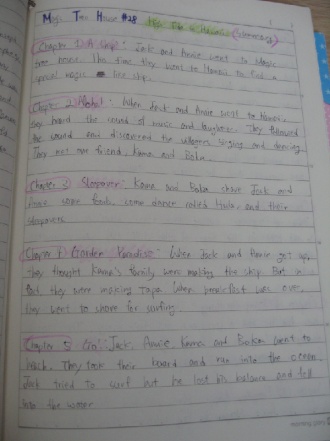 Magic Tree House #28 High Tide in Hawaii (Summary)
Chapter 1 A Ship: Jack and Annie went to Magic
tree house. This time they went to Hawaii to find a
special magic like ship.
Chapter 2 Aloha!: When Jack and Annie went to Hawaii,
they heard the sound of music and laughter. They followed
the sound and discovered the villagers singing and dancing.
They met our friend, Kama and Boka.
Chapter 3 Sleepover: Kama and Boka shave Jack and
Annie some food, some dance called hula, and their
sleepovers.
Chapter 4 Garden Paradise: When Jack and Annie got up,
they thought Kama's family were making the ship. But in
fact, they were making Tapa. When breakfast was over,
they went to shore for surfing.
Chapter 5 Go!: Jack, Annie, Kama, and Boka went to
beach. They took their board and run into the ocean.
Jack tried to surf but he lost his balance and fell
into the water.
morning glory